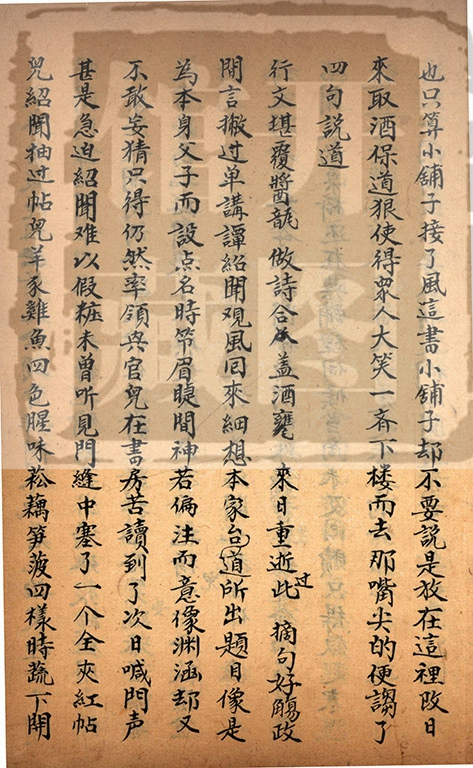 也只算小舖子接了風這書小舖子却不要說是放在這裡改日
來取酒保道狠使得眾人大笑一齊下楼而去那嘴尖的便謅了
四句説道
行文堪覆醬瓿做詩合盖酒甕來日重逝此过摘句好觴政
閒言撇过单講譚紹聞观風回來細想本家台道所出題目像是
為本身父子而設点名時笻眉睫間神若偏注而意像渊涵却又
不敢妄猜只得仍然率領兴官兒在書房苦讀到了次日喊門声
甚是急迫紹聞难以假粧未曾听見門縫中塞了一个全夾紅帖
兒紹聞抽过帖兒羊豕雞魚四色腥味菘藕笋菠四樣時蔬下開